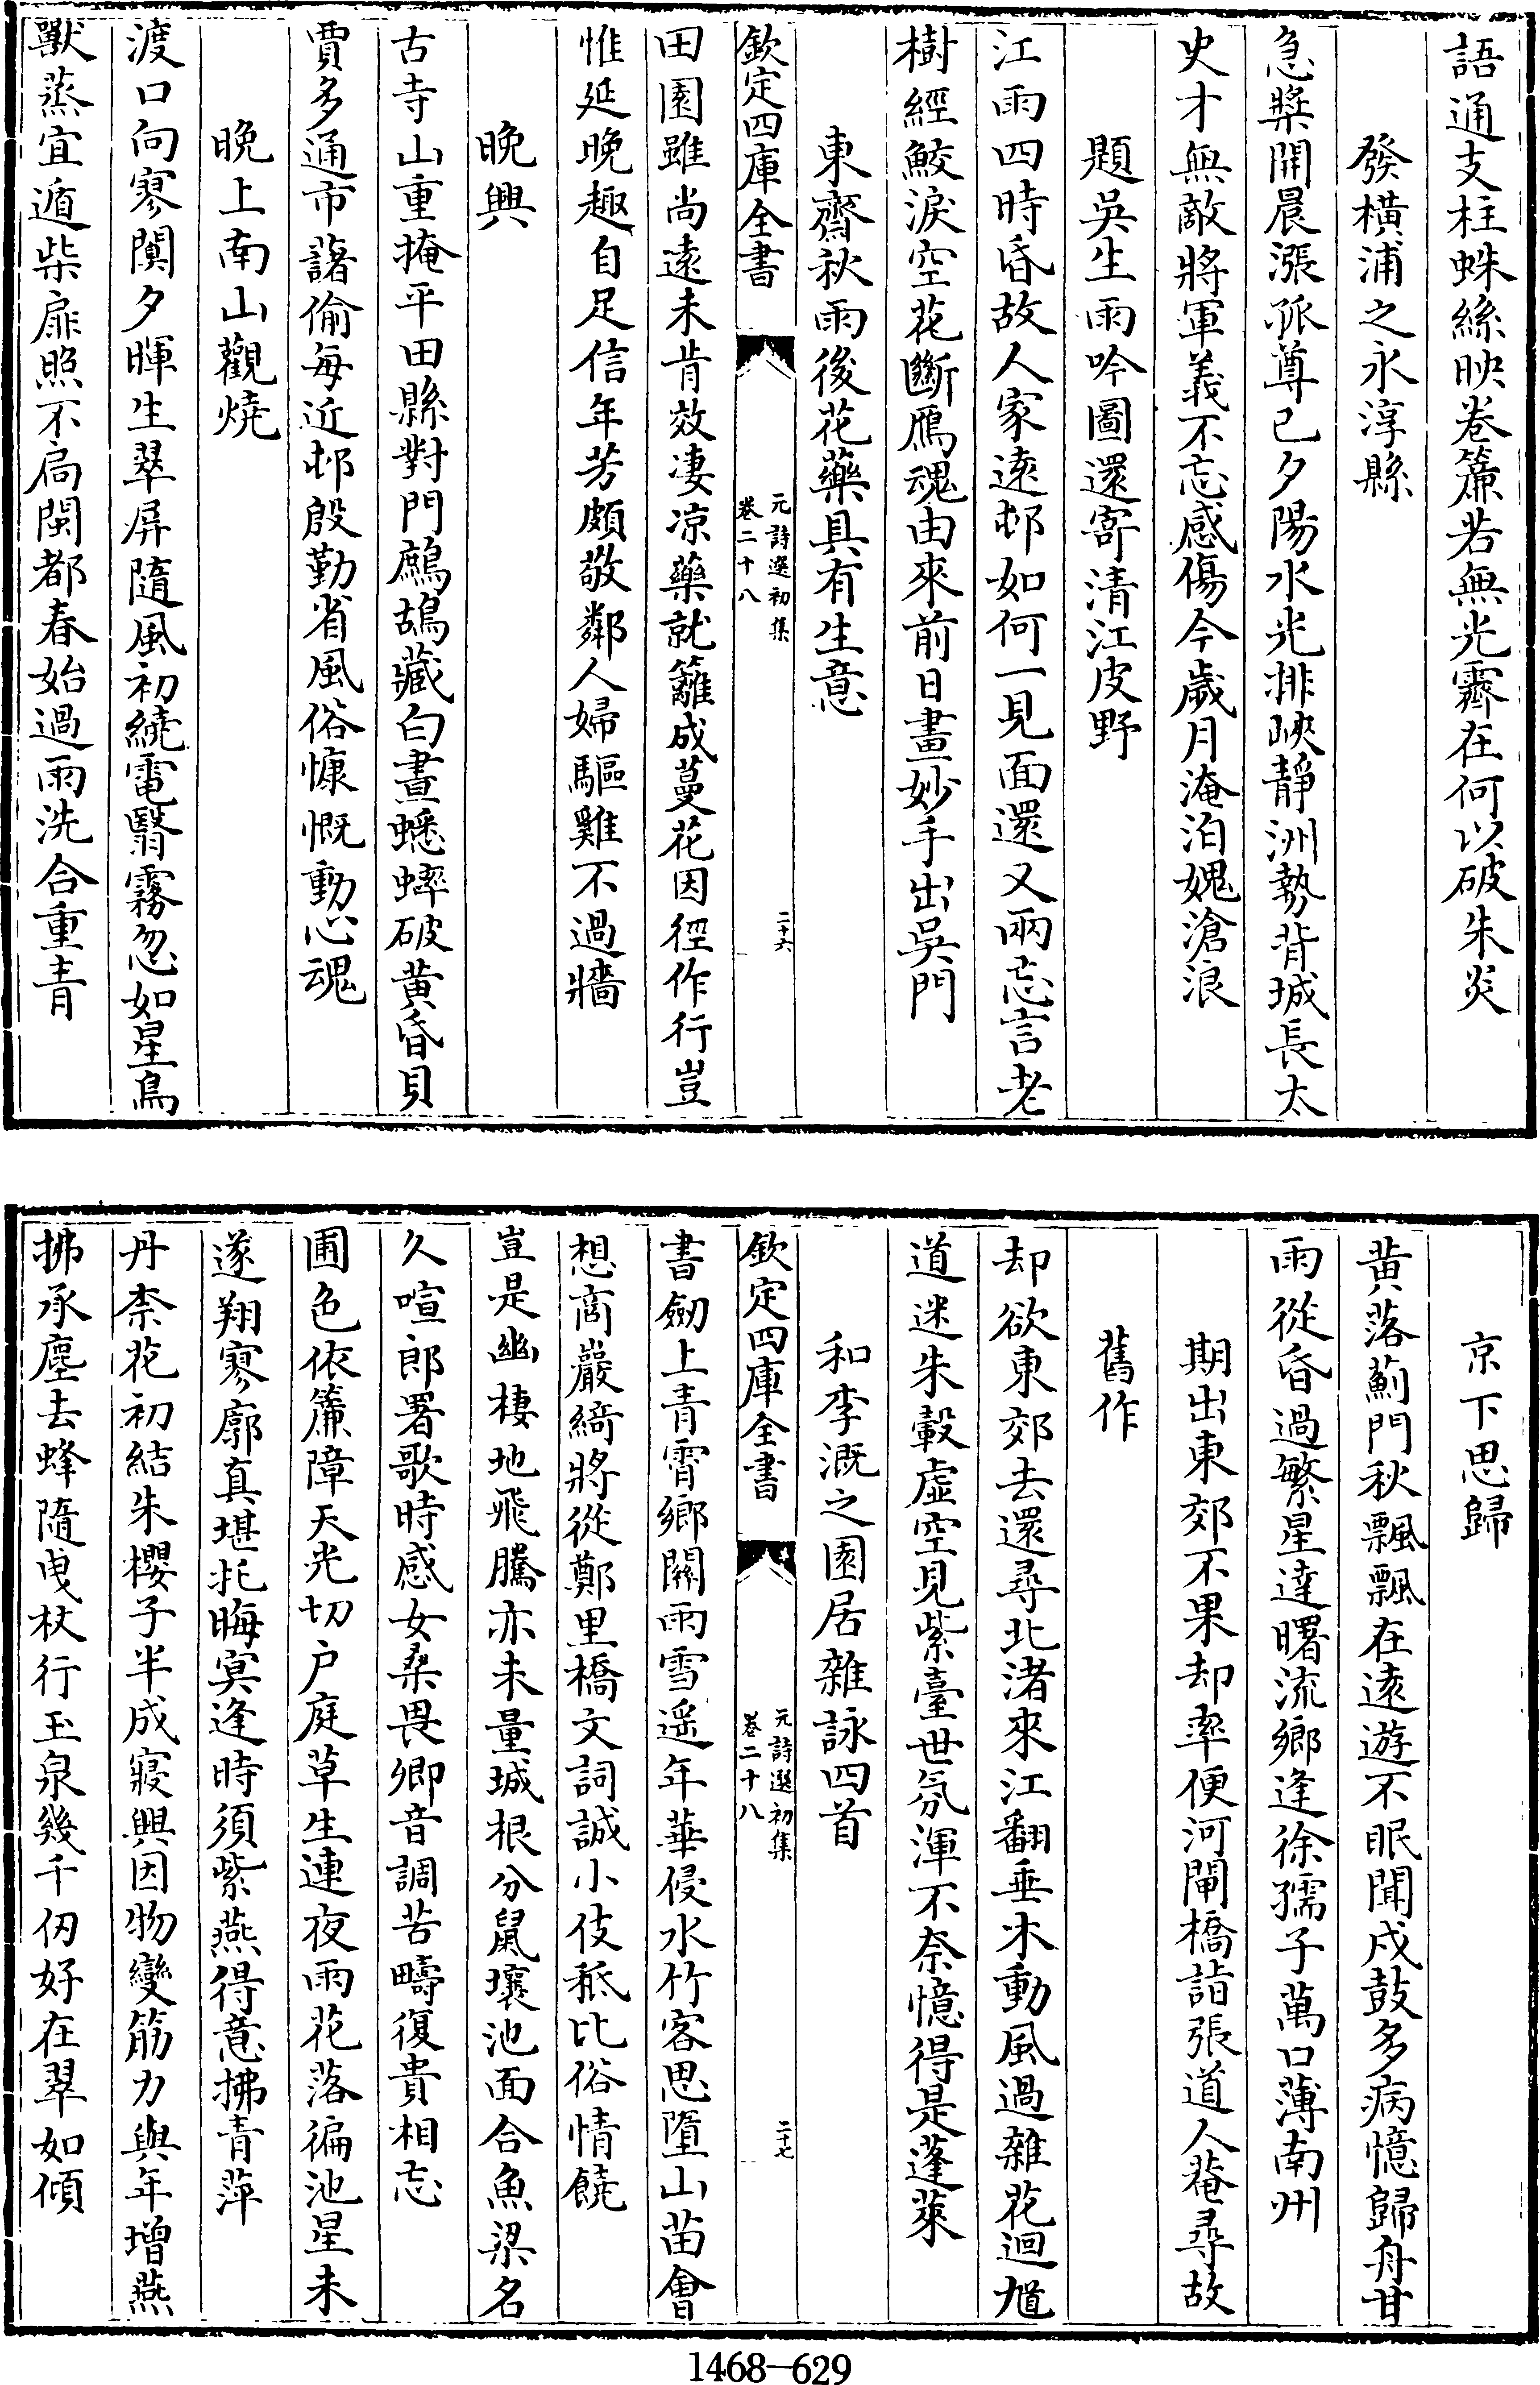 語通支柱蛛絲映卷簾若無光霽在何以破朱炎
發橫浦之永淳縣
急槳開晨漲孤尊已夕陽水光排峽靜洲勢背城長太
史才無敵將軍義不忘感傷今歲月淹泊媿滄浪
題吳生雨吟圖還寄清江皮野
江雨四時昏故人家遠邨如何一見面還又兩忘言老
樹經鮫淚空花斷鴈魂由來前日畫妙手出吳門
東齋秋雨後花藥具有生意
欽定四庫全書
元詩選初集
卷二十八
二十六
田園雖尚遠未肯效凄凉藥就籬成蔓花因徑作行豈
惟延晚趣自足信年芳頗敬鄰人婦驅雞不過牆
晚興
古寺山重掩平田縣對門鷓鴣藏白晝蟋蟀破黄昏貝
賈多通市藷偷每近邨殷勤省風俗慷慨動心魂
晚上南山觀燒
渡口向寥闃夕暉生翠屏隨風初繞電翳霧忽如星鳥
獸蒸宜遁柴扉照不扃閩都春始過雨洗合重青
京下思歸
黄落薊門秋飄飄在遠遊不眠聞戍鼓多病憶歸舟甘
雨從昏過繁星達曙流鄉逢徐孺子萬口薄南州
期出東郊不果却率便河閘橋詣張道人菴尋故
舊作
却欲東郊去還尋北渚來江翻垂木動風過雜花迴馗
道迷朱轂虛空見紫臺世氛渾不奈憶得是蓬萊
和李溉之園居雜詠四首
欽定四庫全書
元詩選初集
卷二十八
二十七
書劒上青霄鄉關雨雪遥年華侵水竹客思墮山苗會
想商巖綺將從鄭里橋文詞誠小伎秪比俗情饒
豈是幽棲地飛騰亦未量城根分鼠壤池面合魚梁名
久喧郎署歌時感女桑畏卿音調苦疇復貴相忘
圃色依簾障天光切户庭草生連夜雨花落徧池星未
遂翔寥廓真堪托晦冥逢時須紫燕得意拂青萍
丹柰花初結朱櫻子半成寢興因物變筋力與年增燕
拂承塵去蜂隨曳杖行玉泉幾千仞好在翠如傾
1468—629